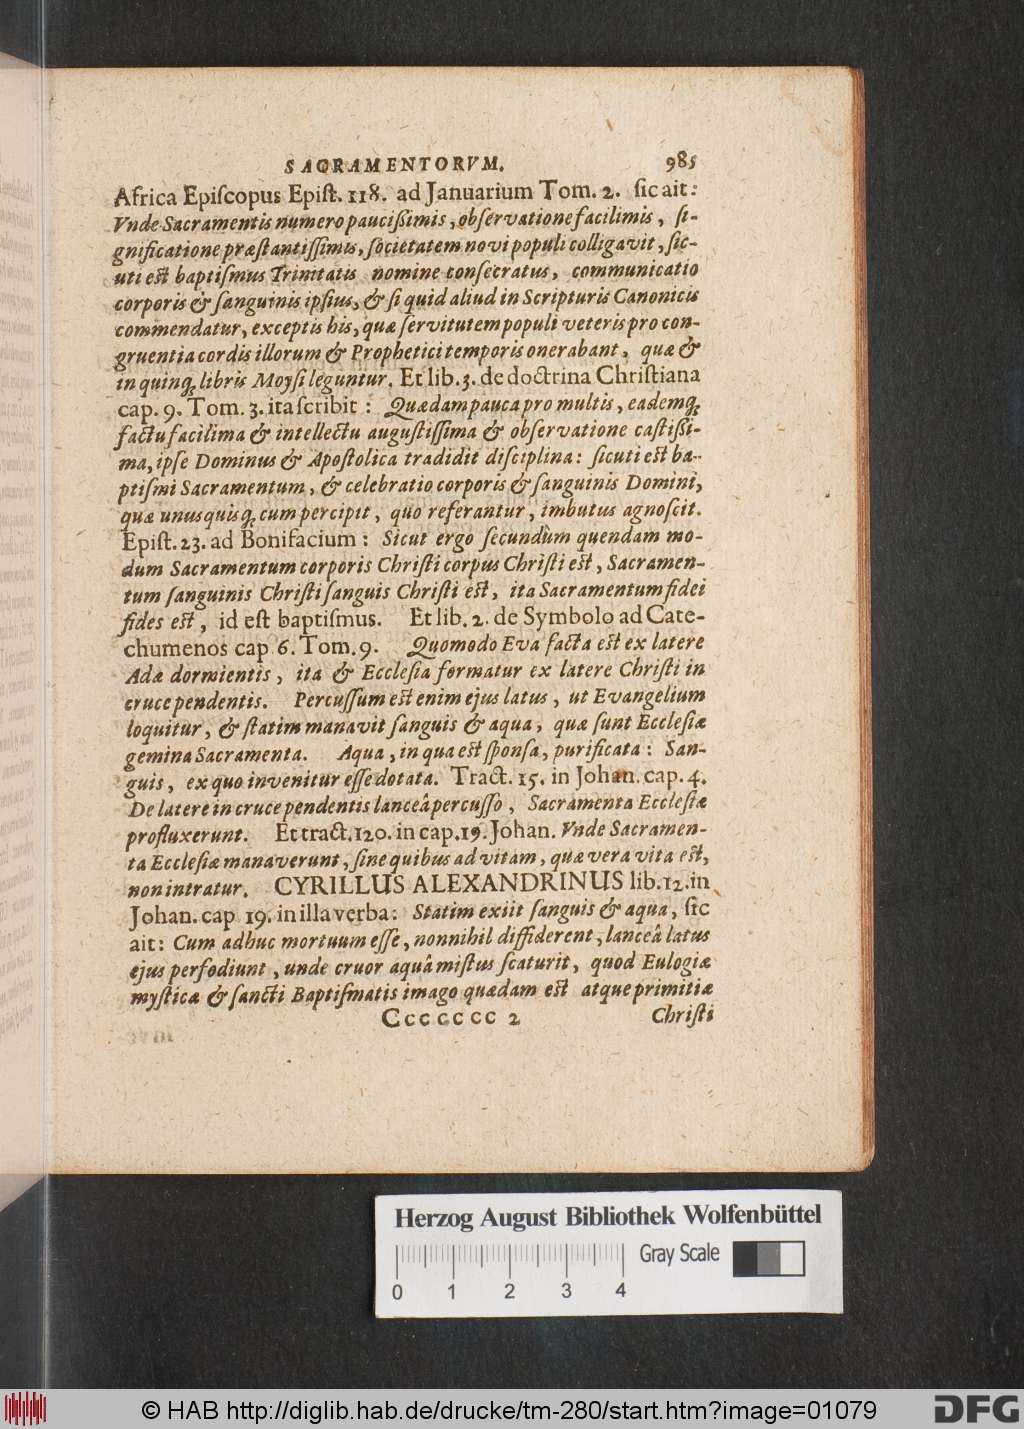 SACRAMENTORVM. 985
Africa Epiſcopus Epiſt. 118. ad Januarium Tom. 2. ſic ait:
Vnde Sacramentis numero pauciſſimis, obſervatione facilimis, ſi-
gnificatione præſtantiſſimis, ſocietatem novi populi colligavit, ſic-
uti eſt baptiſmus Trinitatis nomine conſecratus, communicatio
corporis & ſanguinis ipſius, & ſi quid aliud in Scripturis Canonicis
commendatur, exceptis his, quæ ſervitutem populi veteris pro con-
gruentia cordis illorum & Prophetici temporis onerabant, quæ &
in quinq; libris Moyſi leguntur. Et lib. 3. de doctrina Chriſtiana
cap. 9. Tom. 3. ita ſcribit: Quædam pauca pro multis, eademq;
factu facilima & intellectu auguſtiſſima & obſervatione caſtißi-
ma, ipſe Dominus & Apoſtolica tradidit diſciplina: ſicuti eſt ba-
ptiſmi Sacramentum, & celebratio corporis & ſanguinis Domini,
quæ unusquisq; cum percipit, quo referantur, imbutus agnoſcit.
Epiſt. 23. ad Bonifacium: Sicut ergo ſecundùm quendam mo-
dum Sacramentum corporis Chriſti corpus Chriſti eſt, Sacramen-
tum ſanguinis Chriſti ſanguis Chriſti eſt, ita Sacramentum fidei
fides eſt, id eſt baptiſmus. Et lib. 2. de Symbolo ad Cate-
chumenos cap 6. Tom. 9. Quomodo Eva facta eſt ex latere
Adæ dormientis, ita & Eccleſia formatur ex latere Chriſti in
cruce pendentis. Percuſſum eſt enim ejus latus, ut Evangelium
loquitur, & ſtatim manavit ſanguis & aqua, quæ ſunt Eccleſiæ
gemina Sacramenta. Aqua, in qua eſt ſponſa, purificata: San-
guis, ex quo invenitur eſſe dotata. Tract. 15. in Johan. cap. 4.
De latere in cruce pendentis lanceâ percuſſo, Sacramenta Eccleſiæ
profluxerunt. Et tract. 120. in cap. 19. Johan. Vnde Sacramen-
ta Eccleſiæ manaverunt, ſine quibus ad vitam, quæ vera vita eſt,
non intratur. CYRILLUS ALEXANDRINUS lib. 12. in
Johan. cap 19. in illa verba: Statim exiit ſanguis & aqua, ſic
ait: Cum adhuc mortuum eſſe, nonnihil diffiderent, lanceâ latus
ejus perfodiunt, unde cruor aquâ miſtus ſcaturit, quod Eulogiæ
myſticæ & ſancti Baptiſmatis imago quædam eſt atque primitiæ
Ccc cccc 2 Chriſti
Herzog August Bibliothek Wolfenbüttel
Gray Scale
0 1 2 3 4
© HAB http://diglib.hab.de/drucke/tm-280/start.htm?image=01079
DFG